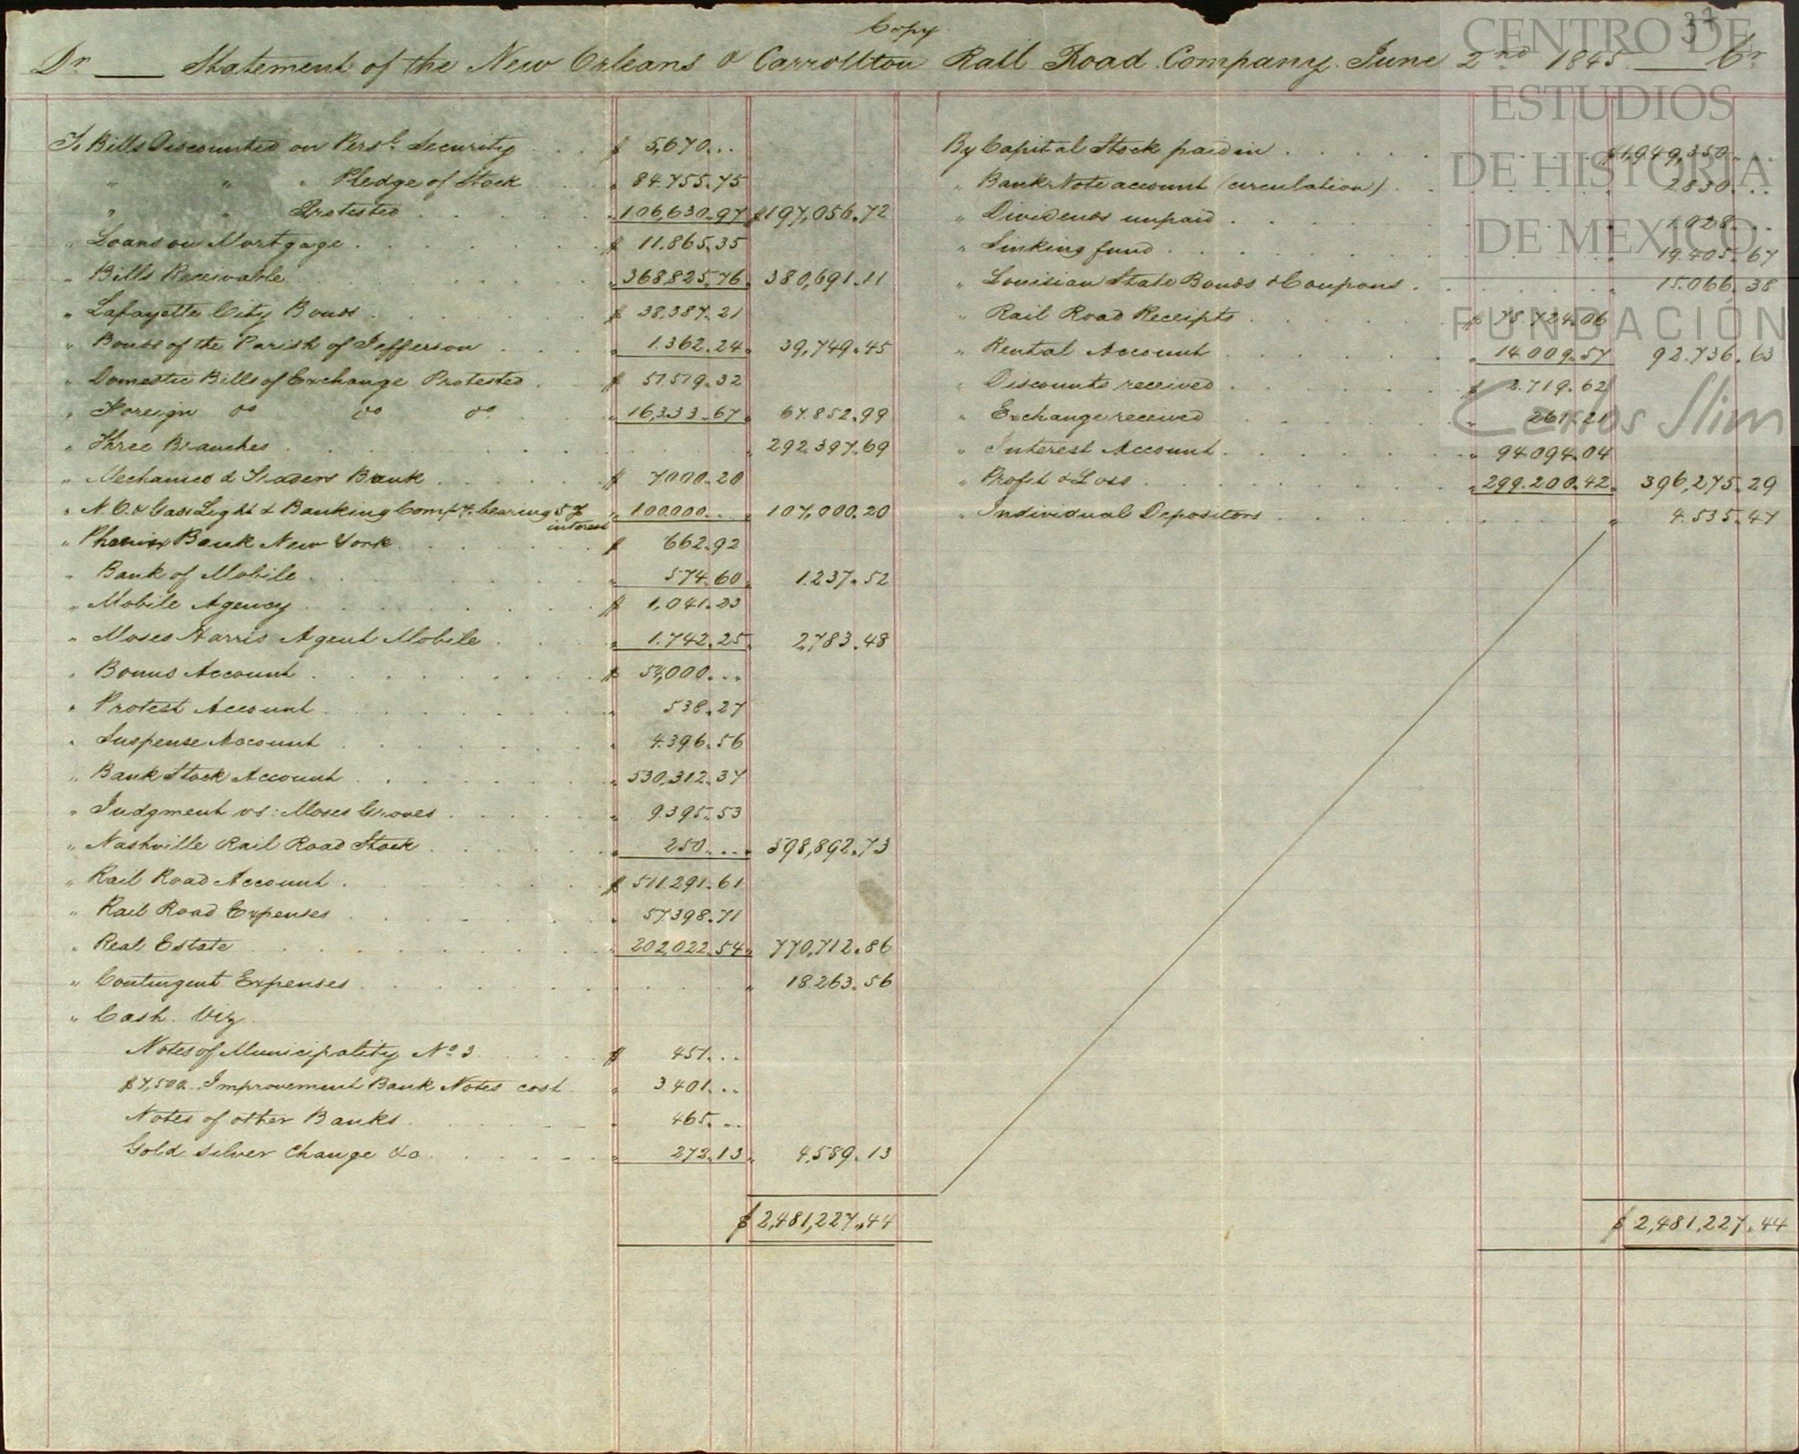 Copy.
33
Dr ___ Statement of the New Orleans & Carrollton Rail Road Company. June 2nd 1845 ___ Cr
To Bills Discounted on Persl. Security . . . $ 5,670...
" " " Pledge of Stock . . . " 84.755.75
" " Protested . . . " 106,630.97 $197,056.72
" Loans on Mortgage . . . $ 11.865.35
" Bills Receivable . . . " 368,825.76 " 380,691.11
" Lafayette City Bonds . . . $ 38,387.21
" Bonds of the Parish of Jefferson . . . " 1.362.24 " 39,749.45
" Domestic Bills of Exchange Protested . . . $ 51519.32
" Foreign do do do . . . " 16,333.67 " 67.852.99
" Three Branches . . . " 292.397.69
" Mechanics & Traders Bank . . . $ 7000.20
" N.O. & Gas Light & Banking Compy. bearing 5 % interest " 100.000... " 107,000.20
" Phenix Bank New York . . . $ 662.92
" Bank of Mobile . . . " 574.60 " 1.237.52
" Mobile Agency . . . $ 1,041.23
" Moses Harris Agent Mobile . . . " 1.742.25 " 2,783.48
" Bonus Account . . . $ 54,000...
" Protest Account . . . " 538.27
" Suspense Account . . . " 4.396.56
" Bank Stock Account . . . " 530,312.37
" Judgment vs: Moses Groves . . . " 9395.53
" Nashville Rail Road Stock . . . " 250... " 598,892.73
" Rail Road Account . . . $ 511.291.61
" Rail Road Expenses . . . " 57398.71
" Real Estate . . . " 202,022.54 " 770,712.86
" Contingent Expenses . . . " 18263.56
" Cash. Viz
Notes of Municipality No 3 . . . $ 451...
$7,500.. Improvement Bank Notes cost " 3.401...
Notes of other Banks . . . " 465...
Gold silver change &c . . . " 272.13 " 4,589.13
$2,481,227.44
By Capital Stock paid in . . . $1,949,350...
" Bank Note account (circulation) . . . 2830...
" Dividends unpaid . . . 1028...
" Sinking fund . . . " 19.405.67
" Louisian State Bonds & Coupons . . . " 15.066.38
" Rail Road Receipts . . . $ 78727.06
" Rental Account . . . " 14009.57 92.736.63
" Discounts received . . . $ 2.719.62
" Exchange received . . . 261.21
" Interest Account . . . " 94094.04
" Profit & Loss . . . " 299.200.42 " 396,275.29
" Individual Depositors . . . " 4.535.47
$ 2,481,227.44
CENTRO DE
ESTUDIOS
DE HISTORIA
DE MEXICO
FUNDACIÓN
Carlos Slim